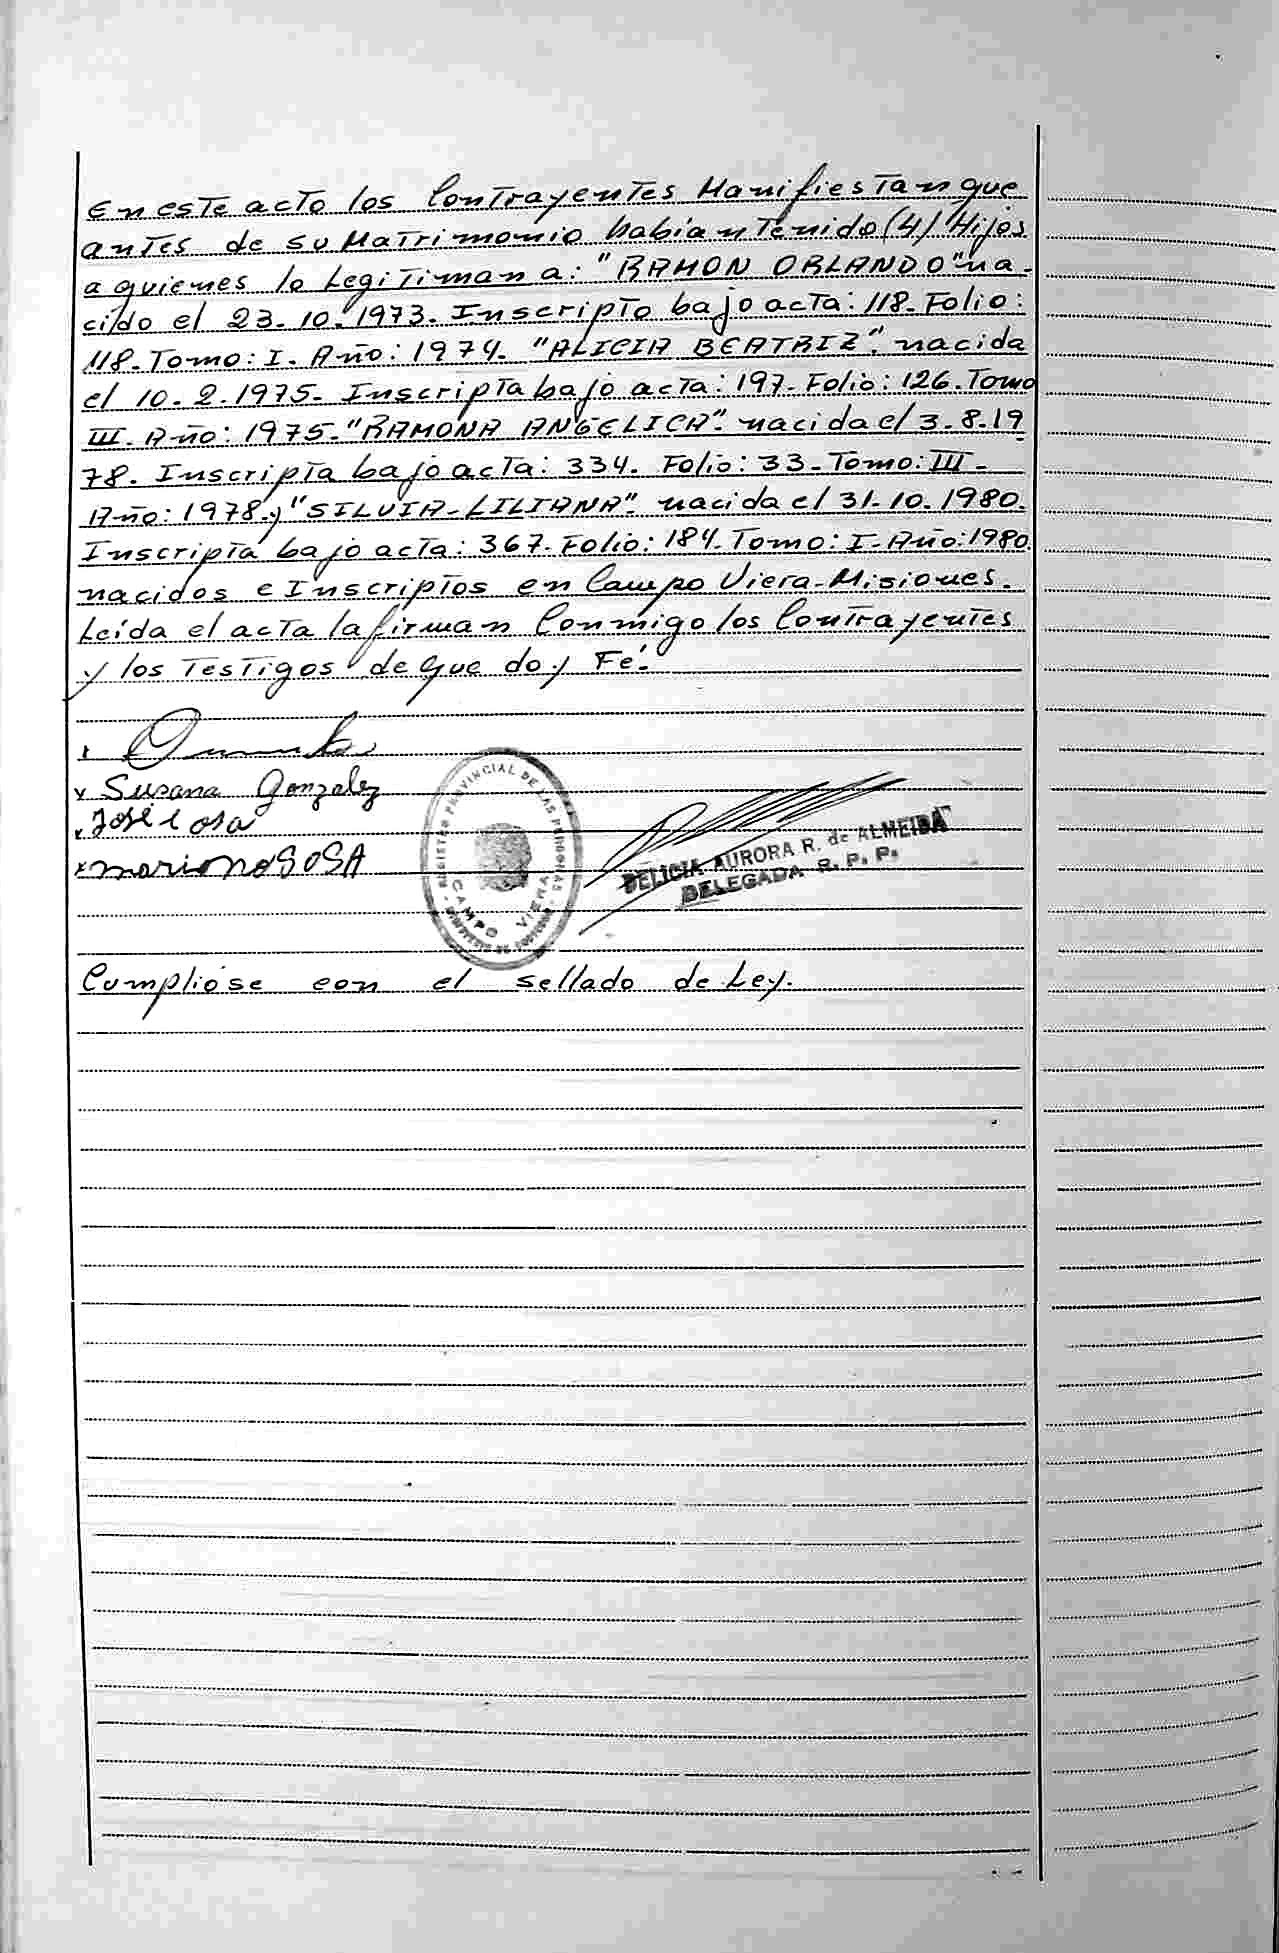 En este acto los Contrayentes Manifiestan que
antes de su Matrimonio habian tenido (4) Hijos
a quienes lo Legitiman a: "RAMON ORLANDO" na-
cido el 23.10.1973. Inscripto bajo acta: 118. Folio:
118. Tomo: I. Año: 1974. "ALICIA BEATRIZ". nacida
el 10.2.1975. Inscripta bajo acta: 197. Folio: 126. Tomo
III. Año: 1975. "RAMONA ANGELICA". nacida el 3.8.19
78. Inscripta bajo acta: 334. Folio: 33. Tomo: III-
Año: 1978. y "SILVIA-LILIANA". nacida el 31.10.1980.
Inscripta bajo acta: 367. Folio: 184. Tomo: I. Año: 1980
nacidos e Inscriptos en Campo Viera-Misiones.
Leída el acta la firman Conmigo los Contrayentes
y los Testigos de que doy Fé.
x Susana Gonzalez
x José
x mariano SOSA
REGISTRO PROVINCIAL DE LAS PERSONAS
CAMPO VIERA
DELICIA AURORA R. de ALMEIDA
DELEGADA R. P. P.
Cumplióse con el sellado de Ley.